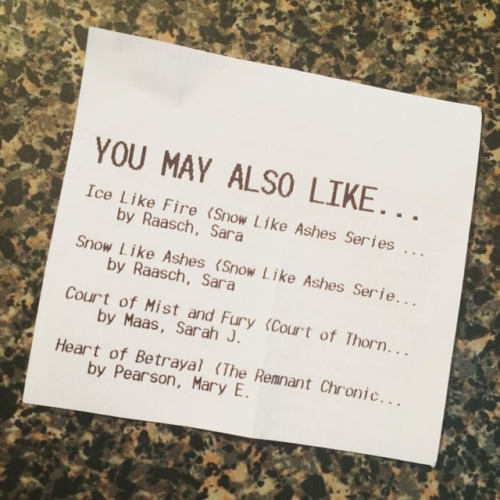 YOU MAY ALSO LIKE...
Ice Like Fire (Snow Like Ashes Series ...
by Raasch, Sara
Snow Like Ashes (Snow Like Ashes Serie...
by Raasch, Sara
Court of Mist and Fury (Court of Thorn...
by Maas, Sarah J.
Heart of Betrayal (The Remnant Chronic...
by Pearson, Mary E.